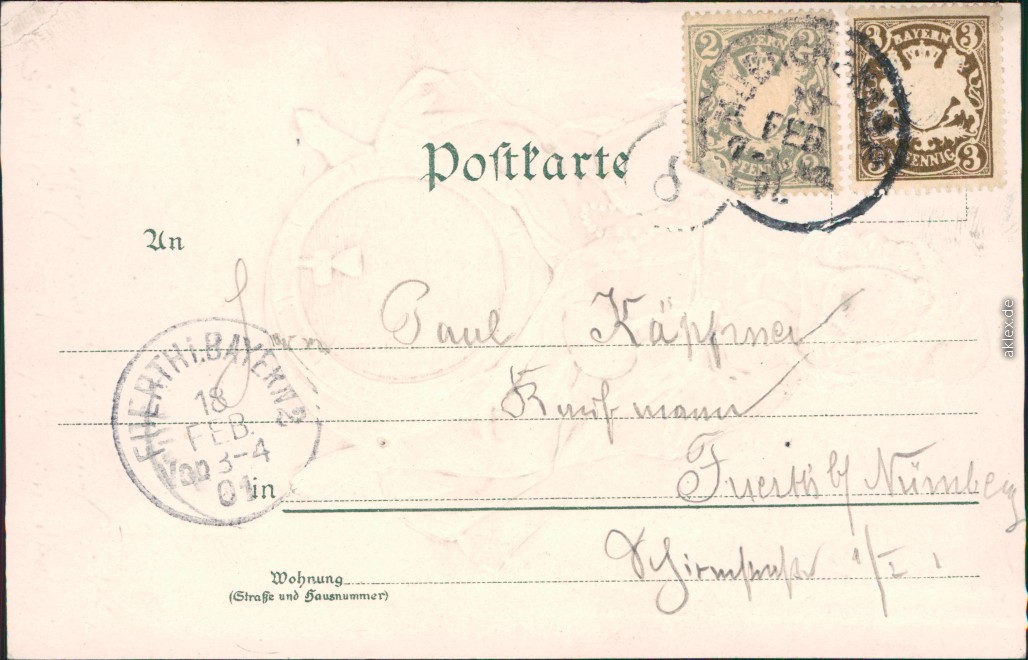 2 2
BAYERN
PFENNIG 2
3 BAYERN 3
PFENNIG 3
14
FEB
Postkarte
An
Paul Käpfner
Kaufmann
FUERTH i. BAYERN 2
18
FEB.
3-4
01
in Fuerth b/ Nürnberg
Schirmstraße 1/I
Wohnung
(Straße und Hausnummer)
aklex.de